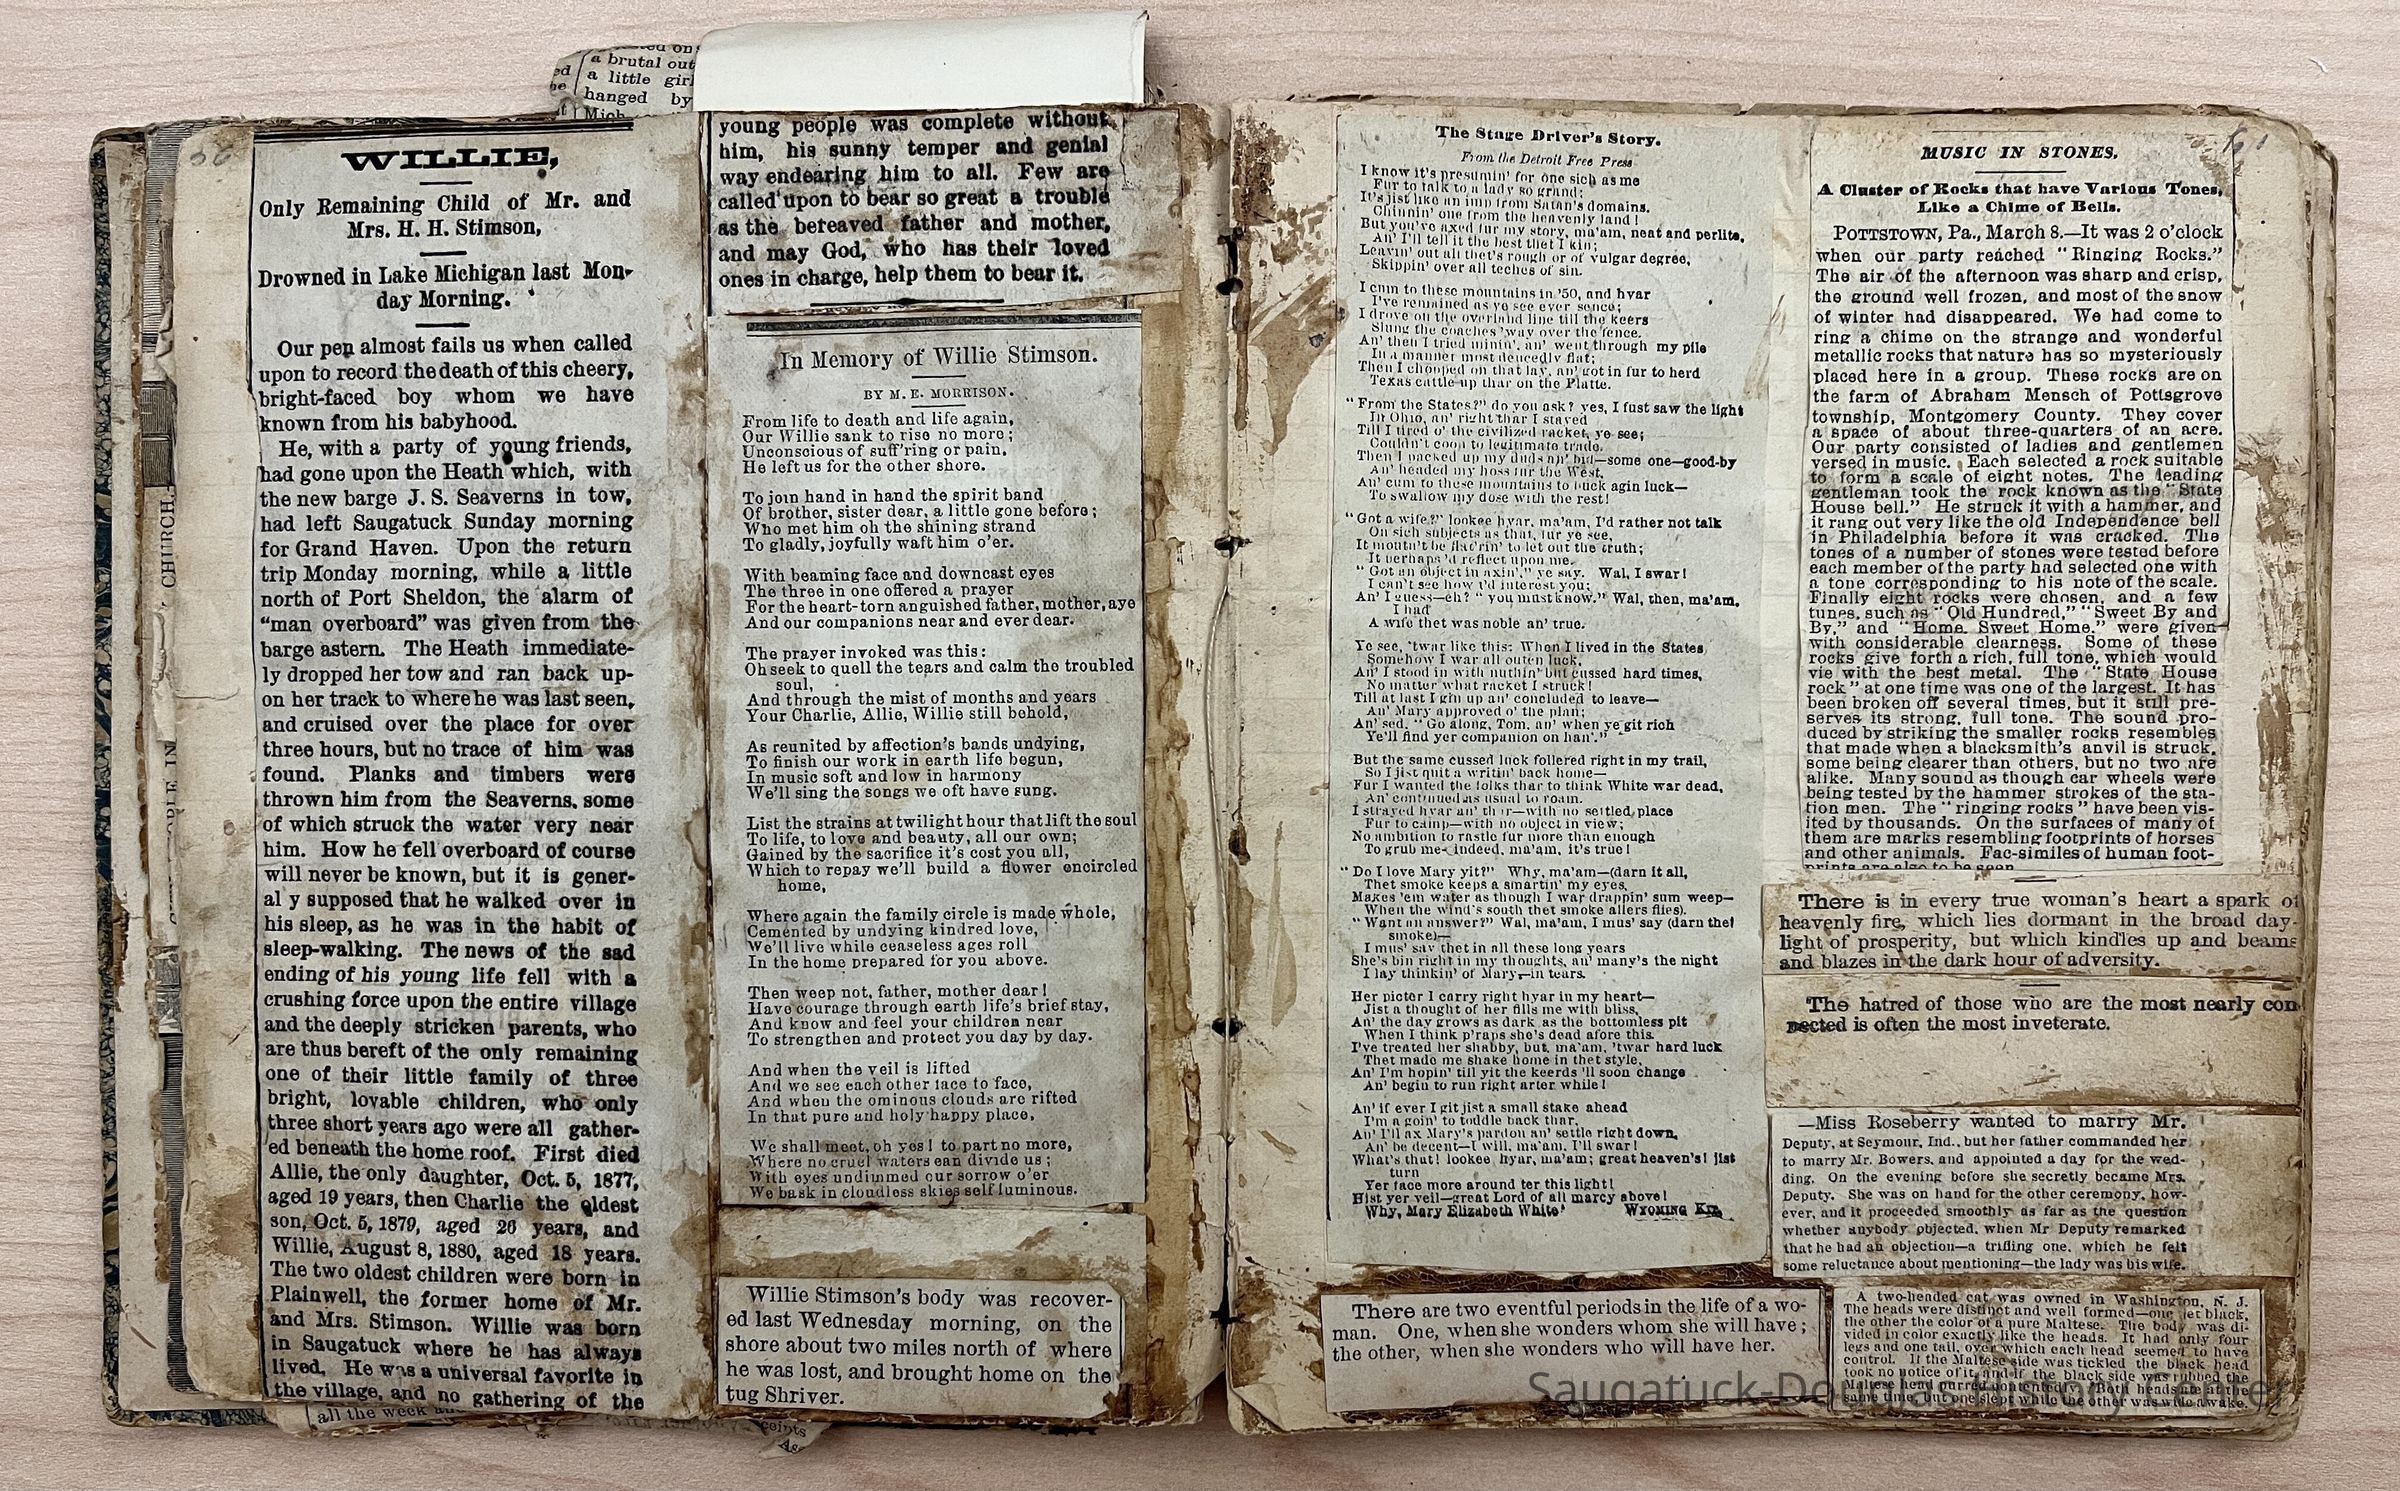 a brutal out
a little girl
hanged by
Mich
36
WILLIE,
Only Remaining Child of Mr. and
Mrs. H. H. Stimson,
Drowned in Lake Michigan last Mon-
day Morning.
Our pen almost fails us when called
upon to record the death of this cheery,
bright-faced boy whom we have
known from his babyhood.
He, with a party of young friends,
had gone upon the Heath which, with
the new barge J. S. Seaverns in tow,
had left Saugatuck Sunday morning
for Grand Haven. Upon the return
trip Monday morning, while a little
north of Port Sheldon, the alarm of
“man overboard” was given from the
barge astern. The Heath immediate-
ly dropped her tow and ran back up-
on her track to where he was last seen,
and cruised over the place for over
three hours, but no trace of him was
found. Planks and timbers were
thrown him from the Seaverns, some
of which struck the water very near
him. How he fell overboard of course
will never be known, but it is gener-
al y supposed that he walked over in
his sleep, as he was in the habit of
sleep-walking. The news of the sad
ending of his young life fell with a
crushing force upon the entire village
and the deeply stricken parents, who
are thus bereft of the only remaining
one of their little family of three
bright, lovable children, who only
three short years ago were all gather-
ed beneath the home roof. First died
Allie, the only daughter, Oct. 5, 1877,
aged 19 years, then Charlie the oldest
son, Oct. 5, 1879, aged 26 years, and
Willie, August 8, 1880, aged 18 years.
The two oldest children were born in
Plainwell, the former home of Mr.
and Mrs. Stimson. Willie was born
in Saugatuck where he has always
lived. He was a universal favorite in
the village, and no gathering of the
young people was complete without
him, his sunny temper and genial
way endearing him to all. Few are
called upon to bear so great a trouble
as the bereaved father and mother,
and may God, who has their loved
ones in charge, help them to bear it.
In Memory of Willie Stimson.
BY M. E. MORRISON.
From life to death and life again,
Our Willie sank to rise no more;
Unconscious of suff'ring or pain,
He left us for the other shore.
To join hand in hand the spirit band
Of brother, sister dear, a little gone before;
Who met him oh the shining strand
To gladly, joyfully waft him o'er.
With beaming face and downcast eyes
The three in one offered a prayer
For the heart-torn anguished father, mother, aye
And our companions near and ever dear.
The prayer invoked was this:
Oh seek to quell the tears and calm the troubled
soul,
And through the mist of months and years
Your Charlie, Allie, Willie still behold,
As reunited by affection's bands undying,
To finish our work in earth life begun,
In music soft and low in harmony
We'll sing the songs we oft have sung.
List the strains at twilight hour that lift the soul
To life, to love and beauty, all our own;
Gained by the sacrifice it's cost you all,
Which to repay we'll build a flower encircled
home,
Where again the family circle is made whole,
Cemented by undying kindred love,
We'll live while ceaseless ages roll
In the home prepared for you above.
Then weep not, father, mother dear!
Have courage through earth life's brief stay,
And know and feel your children near
To strengthen and protect you day by day.
And when the veil is lifted
And we see each other face to face,
And when the ominous clouds are rifted
In that pure and holy happy place,
We shall meet, oh yes! to part no more,
Where no cruel waters can divide us;
With eyes undimmed our sorrow o'er
We bask in cloudless skies self luminous.
Willie Stimson's body was recover-
ed last Wednesday morning, on the
shore about two miles north of where
he was lost, and brought home on the
tug Shriver.
CHURCH,
all the week
The Stage Driver's Story.
From the Detroit Free Press
I know it's presumin' for one sich as me
Fur to talk to a lady so grand;
It's jist like an imp from Satan's domains.
Chinnin' one from the heavenly land!
But you've axed fur my story, ma'am, neat and perlite,
An' I'll tell it the best thet I kin;
Leavin' out all thet's rough or of vulgar degree,
Skippin' over all teches of sin.
I cum to these mountains in '50, and hyar
I've remained as ye see ever sence;
I drove on the overland line till the keers
Slung the coaches 'way over the fence.
An' then I tried minin', an' went through my pile
In a manner most deucedly flat;
Then I chopped on that lay, an' got in fur to herd
Texas cattle up thar on the Platte.
“From the States?” do you ask? yes, I fust saw the light
In Ohio, an' right thar I stayed
Till I tired o' the civilized racket, ye see;
Couldn't coon to legitimate trade.
Then I packed up my duds an' bid—some one—good-by
An' headed my hoss fur the West,
An' cum to these mountains to buck agin luck—
To swallow my dose with the rest!
“Got a wife?” lookee hyar, ma'am, I'd rather not talk
On sich subjects as that, fur ye see,
It mountn't be flat'rin' to let out the truth;
It perhaps 'd reflect upon me.
“Got an object in axin',” ye say. Wal, I swar!
I can't see how I'd interest you;
An' I guess—eh? “you must know.” Wal, then, ma'am,
I had
A wife thet was noble an' true.
Ye see, 'twar like this: When I lived in the States
Somehow I war all outen luck,
An' I stood in with nuthin' but cussed hard times,
No matter what racket I struck!
Till at last I gin up an' concluded to leave—
An' Mary approved o' the plan;
An' sed, “Go along, Tom, an' when ye git rich
Ye'll find yer companion on han'.”
But the same cussed luck follered right in my trail,
So I jist quit a writin' back home—
Fur I wanted the folks thar to think White war dead,
An' continued as usual to roam.
I strayed hyar an' th r—with no settled place
Fur to camp—with no object in view;
No ambition to rastle fur more than enough
To grub me—indeed, ma'am, it's true!
“Do I love Mary yit?” Why, ma'am—(darn it all,
Thet smoke keeps a smartin' my eyes,
Makes 'em water as though I war drappin' sum weep—
When the wind's south thet smoke allers flies).
“Want an answer?” Wal, ma'am, I mus' say (darn thet
smoke)—
I mus' say thet in all these long years
She's bin right in my thoughts, an' many's the night
I lay thinkin' of Mary—in tears.
Her picter I carry right hyar in my heart—
Jist a thought of her fills me with bliss,
An' the day grows as dark as the bottomless pit
When I think p'raps she's dead afore this.
I've treated her shabby, but, ma'am, 'twar hard luck
Thet made me shake home in thet style,
An' I'm hopin' till yit the keerds 'll soon change
An' begin to run right arter while!
An' if ever I git jist a small stake ahead
I'm a goin' to toddle back thar,
An' I'll ax Mary's pardon an' settle right down,
An' be decent—I will, ma'am, I'll swar!
What's that! lookee hyar, ma'am; great heaven's! jist
turn
Yer face more around ter this light!
Hist yer veil—great Lord of all marcy above!
Why, Mary Elizabeth White!
WYOMING KIT.
There are two eventful periods in the life of a wo-
man. One, when she wonders whom she will have;
the other, when she wonders who will have her.
MUSIC IN STONES.
A Cluster of Rocks that have Various Tones,
Like a Chime of Bells.
POTTSTOWN, Pa., March 8.—It was 2 o'clock
when our party reached “Ringing Rocks.”
The air of the afternoon was sharp and crisp,
the ground well frozen, and most of the snow
of winter had disappeared. We had come to
ring a chime on the strange and wonderful
metallic rocks that nature has so mysteriously
placed here in a group. These rocks are on
the farm of Abraham Mensch of Pottsgrove
township, Montgomery County. They cover
a space of about three-quarters of an acre.
Our party consisted of ladies and gentlemen
versed in music. Each selected a rock suitable
to form a scale of eight notes. The leading
gentleman took the rock known as the “State
House bell.” He struck it with a hammer, and
it rang out very like the old Independence bell
in Philadelphia before it was cracked. The
tones of a number of stones were tested before
each member of the party had selected one with
a tone corresponding to his note of the scale.
Finally eight rocks were chosen, and a few
tunes, such as “Old Hundred,” “Sweet By and
By,” and “Home, Sweet Home,” were given
with considerable clearness. Some of these
rocks give forth a rich, full tone, which would
vie with the best metal. The “State House
rock” at one time was one of the largest. It has
been broken off several times, but it still pre-
serves its strong, full tone. The sound pro-
duced by striking the smaller rocks resembles
that made when a blacksmith's anvil is struck,
some being clearer than others, but no two are
alike. Many sound as though car wheels were
being tested by the hammer strokes of the sta-
tion men. The “ringing rocks” have been vis-
ited by thousands. On the surfaces of many of
them are marks resembling footprints of horses
and other animals. Fac-similes of human foot-
prints are also to be seen.
There is in every true woman's heart a spark of
heavenly fire, which lies dormant in the broad day-
light of prosperity, but which kindles up and beams
and blazes in the dark hour of adversity.
The hatred of those who are the most nearly con
nected is often the most inveterate.
—Miss Roseberry wanted to marry Mr.
Deputy, at Seymour, Ind., but her father commanded her
to marry Mr. Bowers, and appointed a day for the wed-
ding. On the evening before she secretly became Mrs.
Deputy. She was on hand for the other ceremony, how-
ever, and it proceeded smoothly as far as the question
whether anybody objected, when Mr Deputy remarked
that he had an objection—a trifling one, which he felt
some reluctance about mentioning—the lady was his wife.
A two-headed cat was owned in Washington, N. J.
The heads were distinct and well formed—one jet black,
the other the color of a pure Maltese. The body was di-
vided in color exactly like the heads. It had only four
legs and one tail, over which each head seemed to have
control. If the Maltese side was tickled the black head
took no notice of it, and if the black side was rubbed the
Maltese head purred contentedly. Both heads ate at the
same time, but one slept while the other was wide awake.
Saugatuck-Douglas History Center